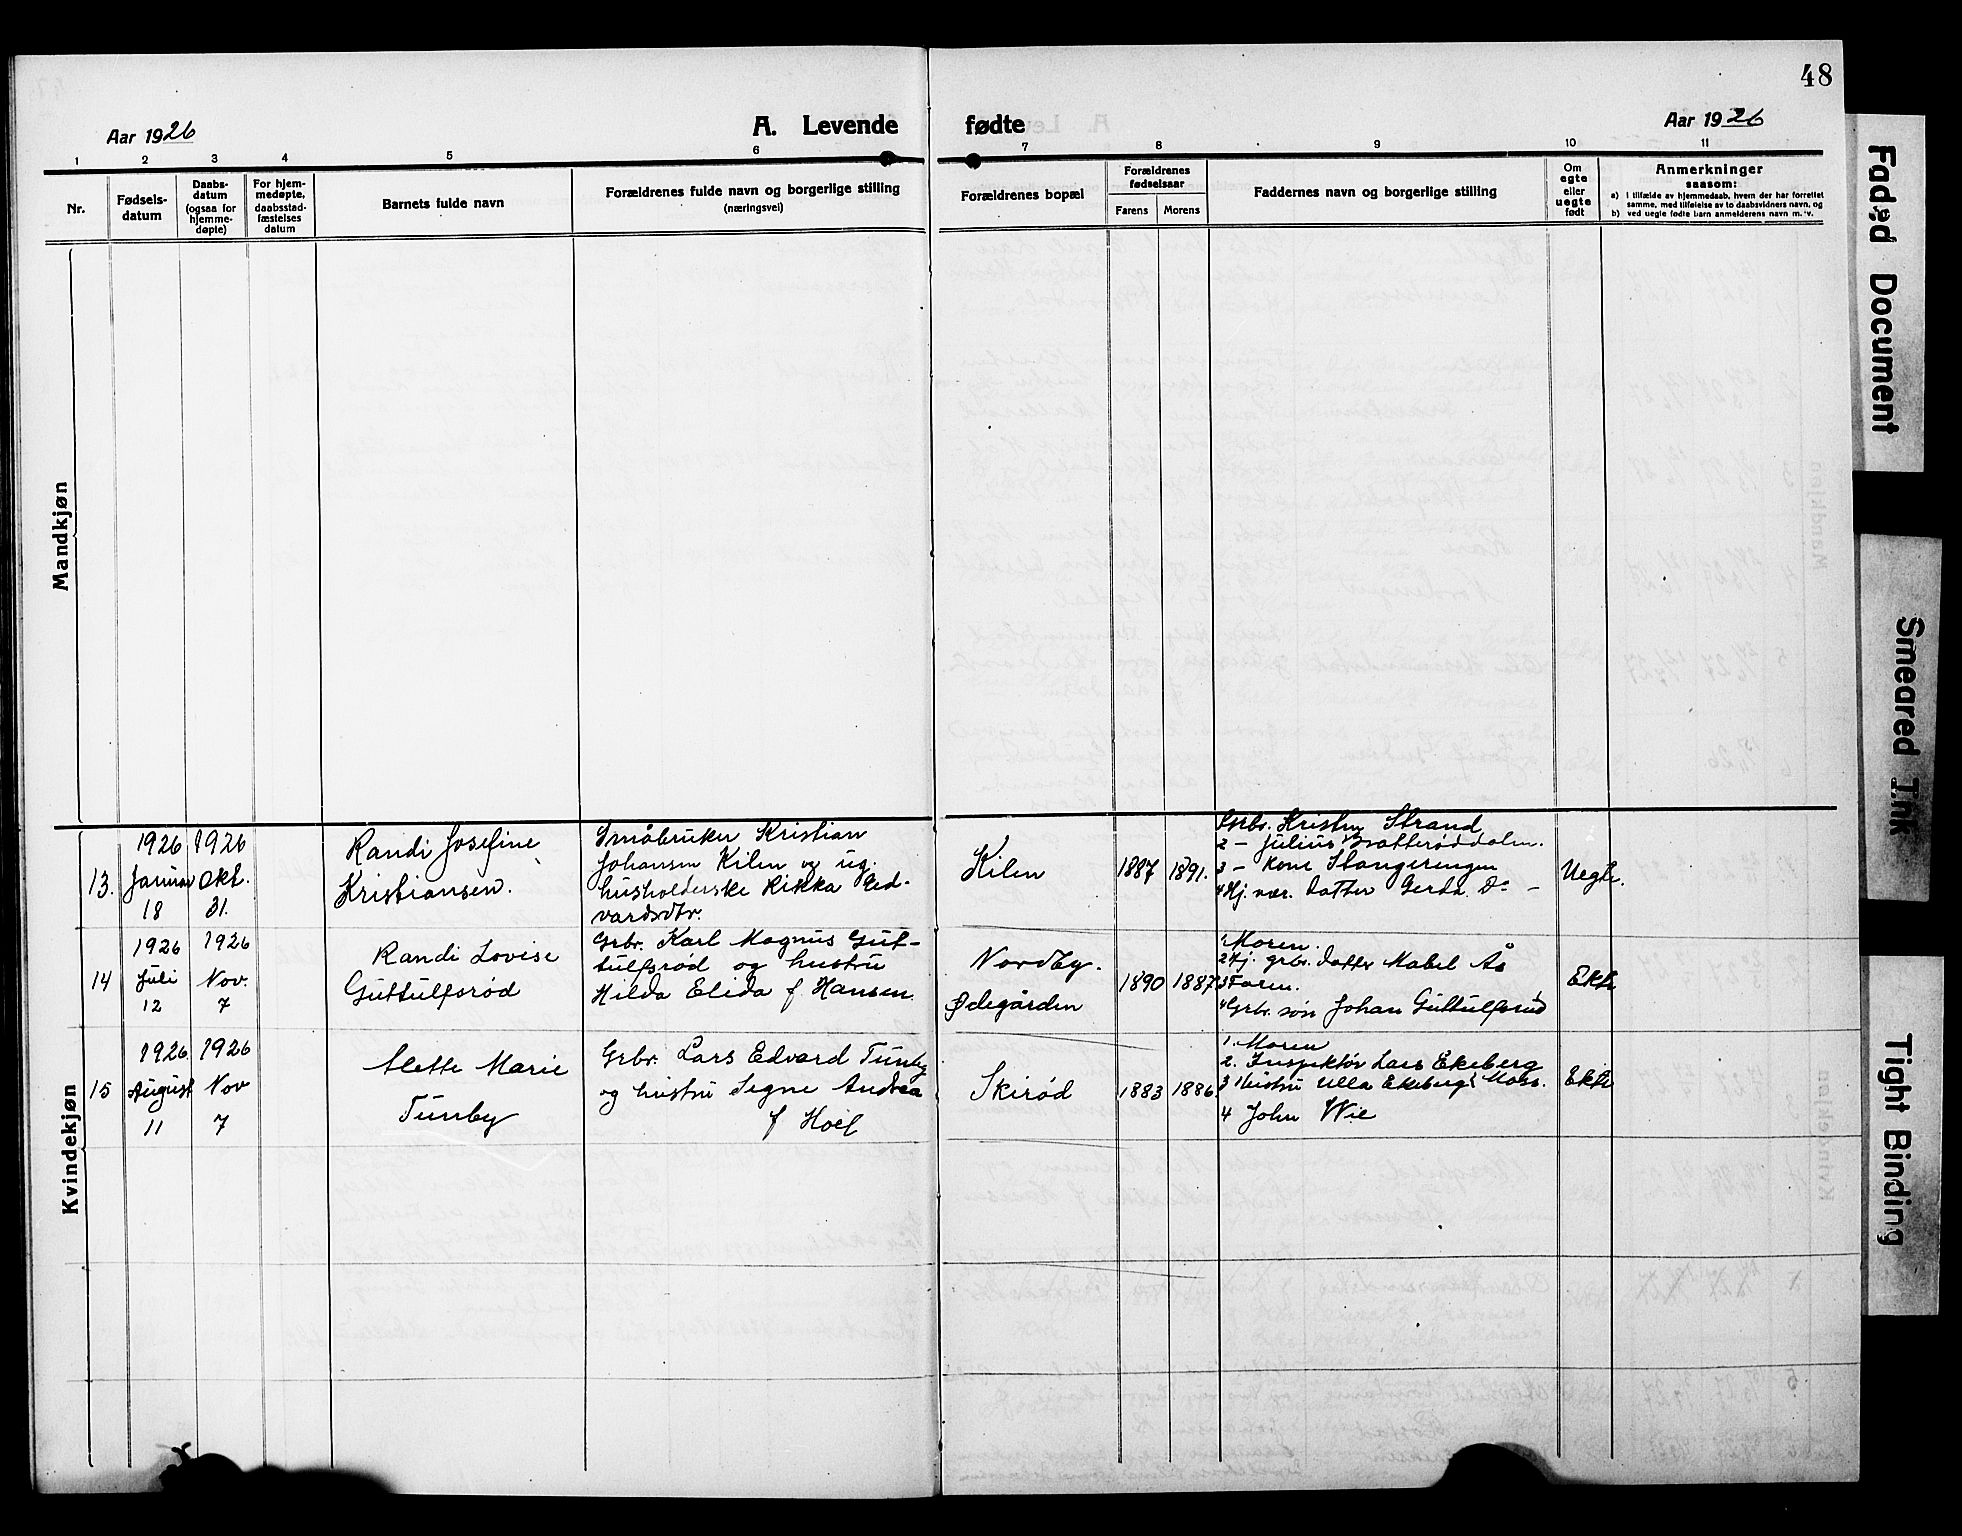 48
Aar 1926
A. Levende fødte
Aar 1926
1 2 3 4 5 6 7 8 9 10 11
Nr.
Fødsels-
datum
Daabs-
datum
(ogsaa for
hjemme-
døpte)
For hjem-
medøpte,
daabsstad-
fæstelses
datum
Barnets fulde navn
Forældrenes fulde navn og borgerlige stilling
(næringsvei)
Forældrenes bopæl
Forældrenes
fødselsaar
Farens Morens
Faddernes navn og borgerlige stilling
Om
egte
eller
uegte
født
Anmerkninger
saasom:
a) i tilfælde av hjemmedaab, hvem der har forrettet
samme, med tilføielse av to daabsvidners navn, og
b) ved uegte fødte barn anmelderens navn m. v.
Mandkjøn
Kvindekjøn
13.
1926
Januar
18
1926
Okt.
31.
Randi Josefine
Kristiansen.
Småbruker Kristian
Johansen Kilen og ug.
husholderske Rikka Ed-
vardsdtr.
Kilen
1887 1891.
Grbr. Kristen Strand
2 - Julius
3 - kone Stangeringen
4 Hj. vær. datter Gerda Do -
Uegte.
14
1926
Juli
12
1926
Nov.
7
Randi Lovise
Guttulfsrød
Grbr. Karl Magnus Gut-
tulfsrød og hustru
Hilda Elida f. Hansen
Nordby.
Ødegården
1890 1887
1 Moren.
2 Hj. grbr. datter Mabel Ås
3 Faren.
4 Grbr. søn Johan Guttulfsrud
Ekte
15
1926
August
11
1926
Nov
7
Mette Marie
Tunby
Grbr. Lars Edvard Tunby
og hustru Signe Andrea
f Hoel
Skirød
1883 1886
1. Moren
2. Inspektør Lars Ekeberg
3 Hustru Ulla Ekeberg, Moss.
4 John Wie
Ekte
Faded Document
Smeared Ink
Tight Binding